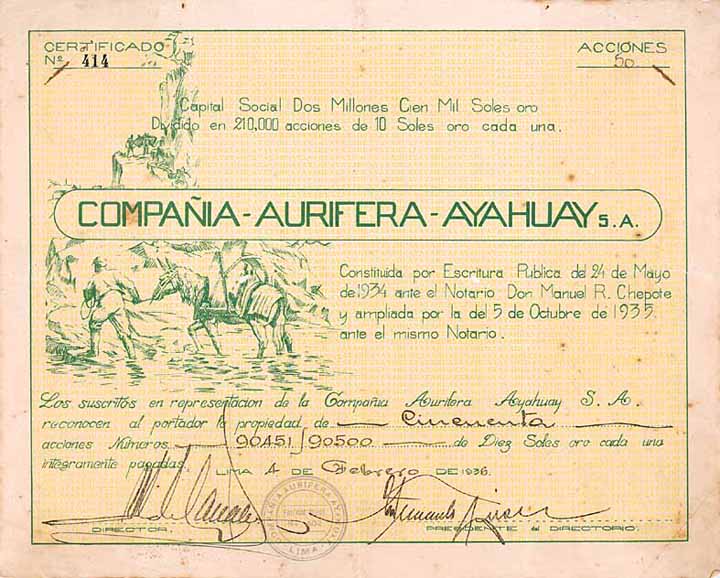 CERTIFICADO
Nº 414
ACCIONES
50
Capital Social Dos Millones Cien Mil Soles oro
Dividido en 210,000 acciones de 10 Soles oro cada una.
COMPAÑIA-AURIFERA-AYAHUAY S.A.
Constituida por Escritura Publica del 24 de Mayo
de 1934 ante el Notario Don Manuel R. Chepote
y ampliada por la del 5 de Octubre de 1935
ante el mismo Notario.
Los suscritos en representacion de la Compañia Aurifera Ayahuay S. A.
reconocen al portador la propiedad de Cincuenta
acciones Números 90451/90500 de Diez Soles oro cada una
integramente pagadas. LIMA 4 DE Febrero DE 1936.
COMPAÑIA AURIFERA AYAHUAY
LIMA
DIRECTOR.
PRESIDENTE del DIRECTORIO.